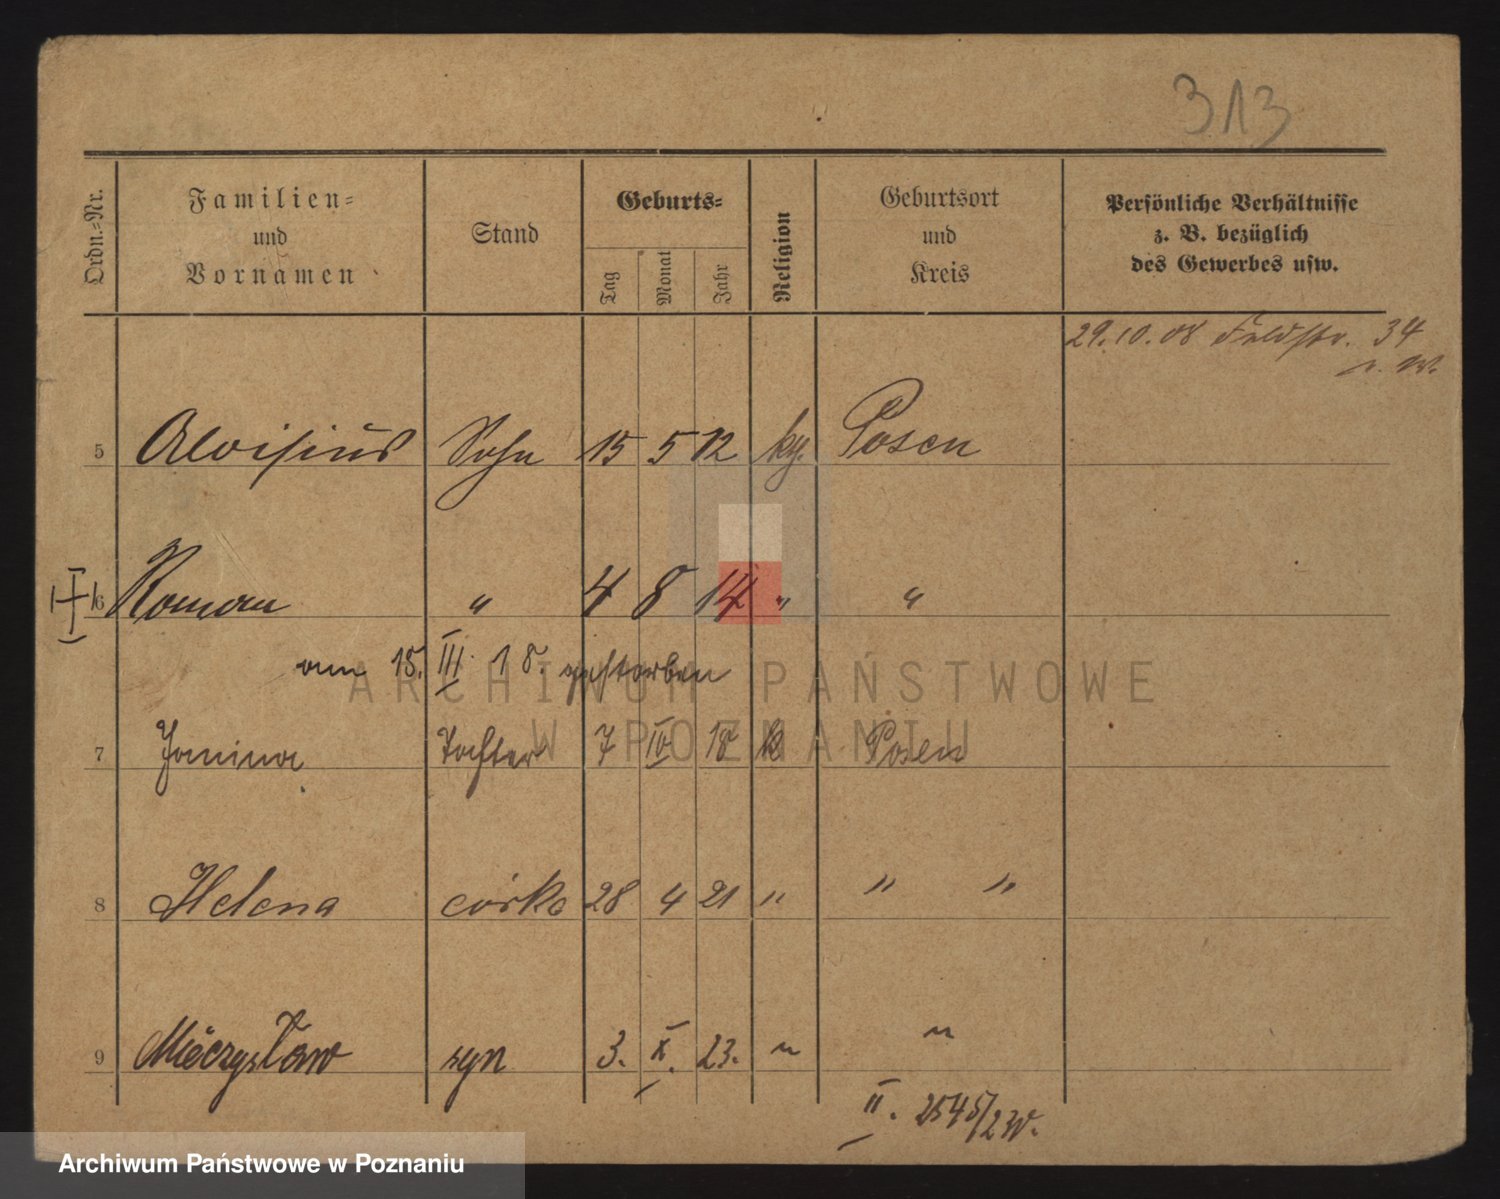 313
Ordn.-Nr.
Familien-
und
Vornamen
Stand
Geburts-
Tag
Monat
Jahr
Religion
Geburtsort
und
Kreis
Persönliche Verhältnisse
z. B. bezüglich
des Gewerbes usw.
29.10.08 Feldstr. 34
5 Aloisius Sohn 15 5 12 Posen
6 Roman " 4 8 14 " "
am 15. III. 18. gestorben
7 Janina Tochter 7 IV 18 k Posen
8 Helena córka 28 4 21 " " "
9 Mieczysław syn 3. X. 23. " "
II. 2545/23
ARCHIWUM PAŃSTWOWE
W POZNANIU
Archiwum Państwowe w Poznaniu